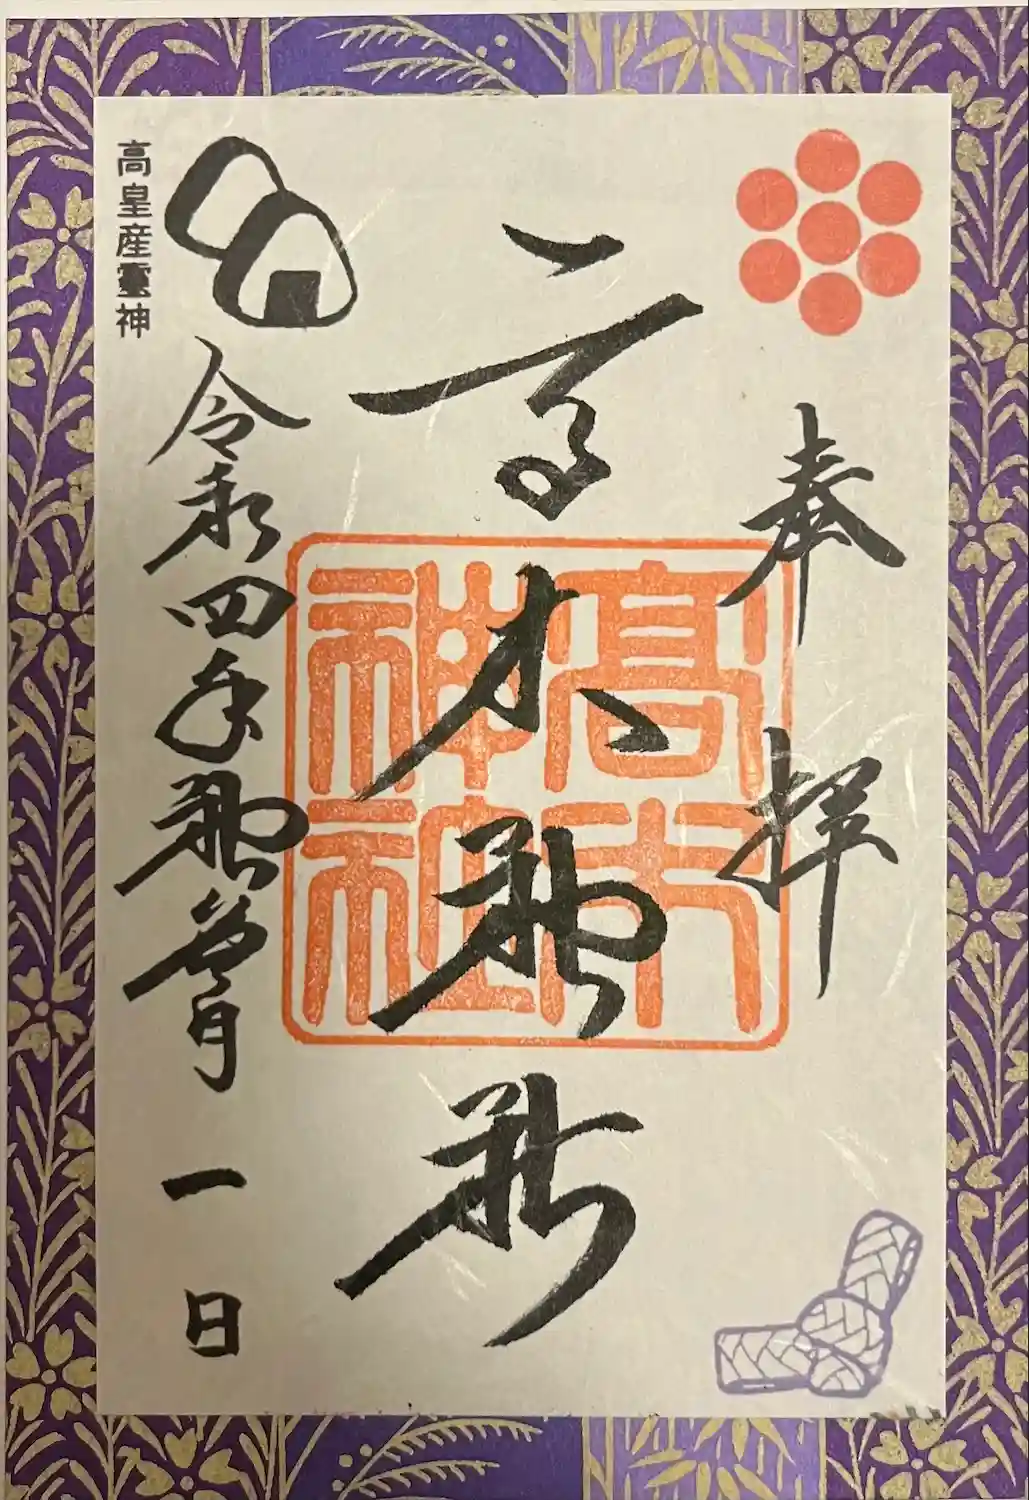 奉拝
高木神社
高木
神社
令和四年神無月一日
高皇産靈神